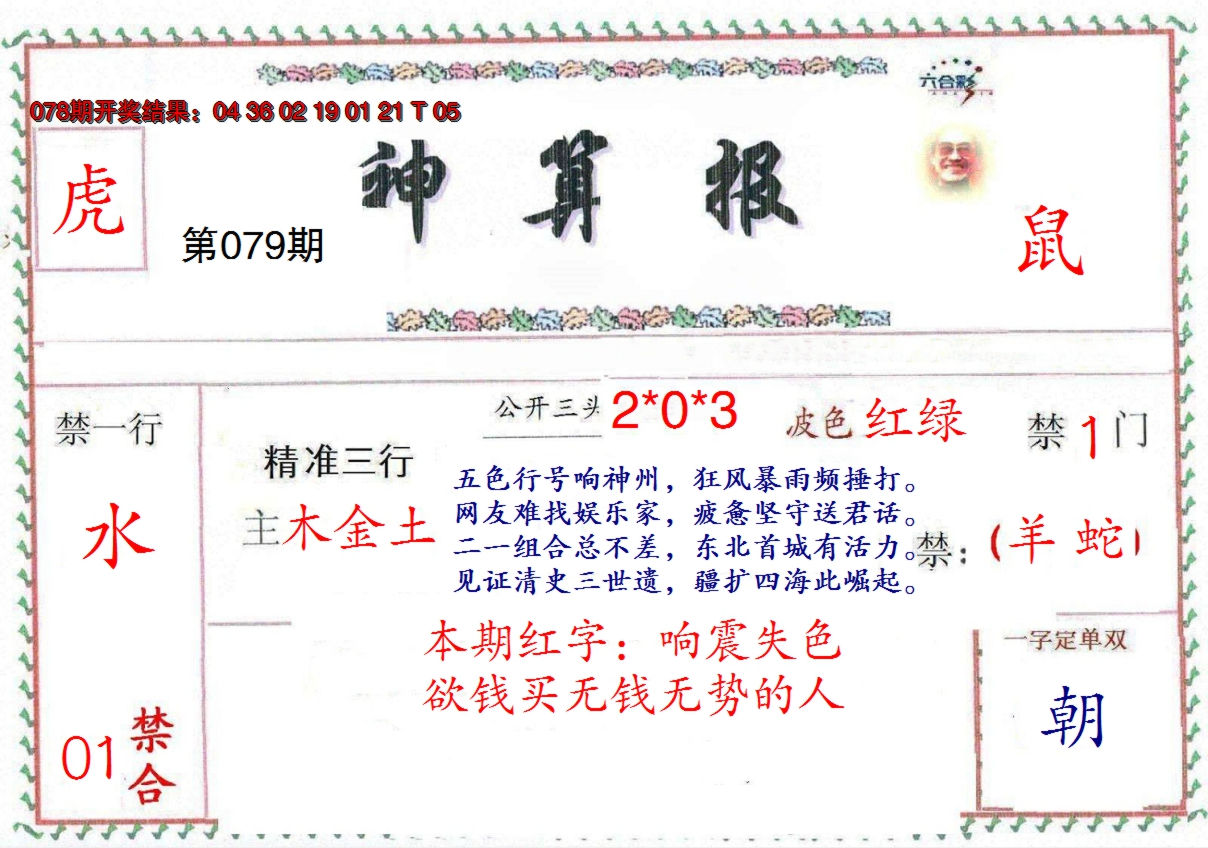 六合彩
078期开奖结果：04 36 02 19 01 21 T 05
虎
第079期
神算报
鼠
禁一行
水
01
禁合
精准三行
主木金土
公开三头 2*0*3
波色 红绿
禁1门
五色行号响神州，狂风暴雨频捶打。
网友难找娱乐家，疲惫坚守送君话。
二一组合总不差，东北首城有活力。
见证清史三世遗，疆扩四海此崛起。
禁：（羊 蛇）
本期红字：响震失色
欲钱买无钱无势的人
一字定单双
朝